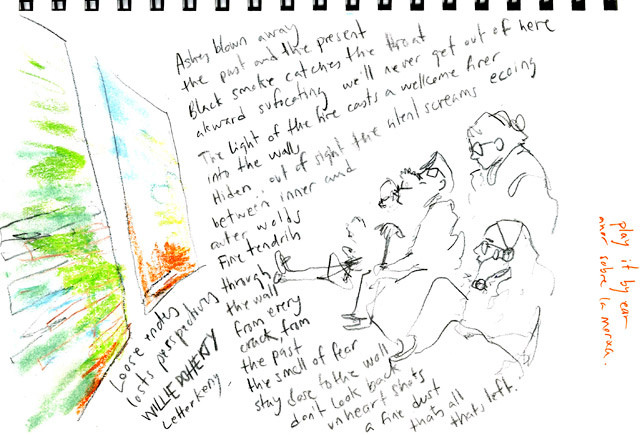 Ashes blown away
the past and the present
Black smoke catches the throat
akward suficating we'll never get out of here
The light of the fire casts a wellcome firer
into the walls
Hiden, out of sight the silent screams ecoing
between inner and
outer wolds
Fine tendrils
through
the wall
from every
crack, from
the past
the smell of fear
stay close to the wall
don't look back
unheart shots
a fine dust
thats all
thats left.
Loose ends
losts perspectives
WILLIE DOHERTY
Letterkeny.
play it by ear
amor sobre la